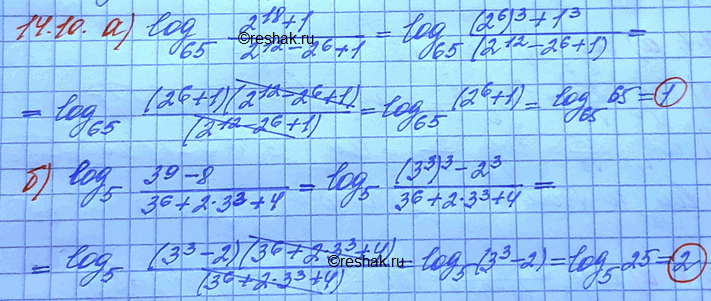 14.10. а) log₆₅ (2¹⁸+1)/(2¹²−2⁶+1) = log₆₅ ((2⁶)³+1³)/(2¹²−2⁶+1) =
= log₆₅ (2⁶+1)(2¹²−2⁶+1)/(2¹²−2⁶+1) = log₆₅ (2⁶+1) = log₆₅ 65 = 1
б) log₅ (3⁹−8)/(3⁶+2·3³+4) = log₅ ((3³)³−2³)/(3⁶+2·3³+4) =
= log₅ (3³−2)(3⁶+2·3³+4)/(3⁶+2·3³+4) = log₅ (3³−2) = log₅ 25 = 2
©reshak.ru
©reshak.ru